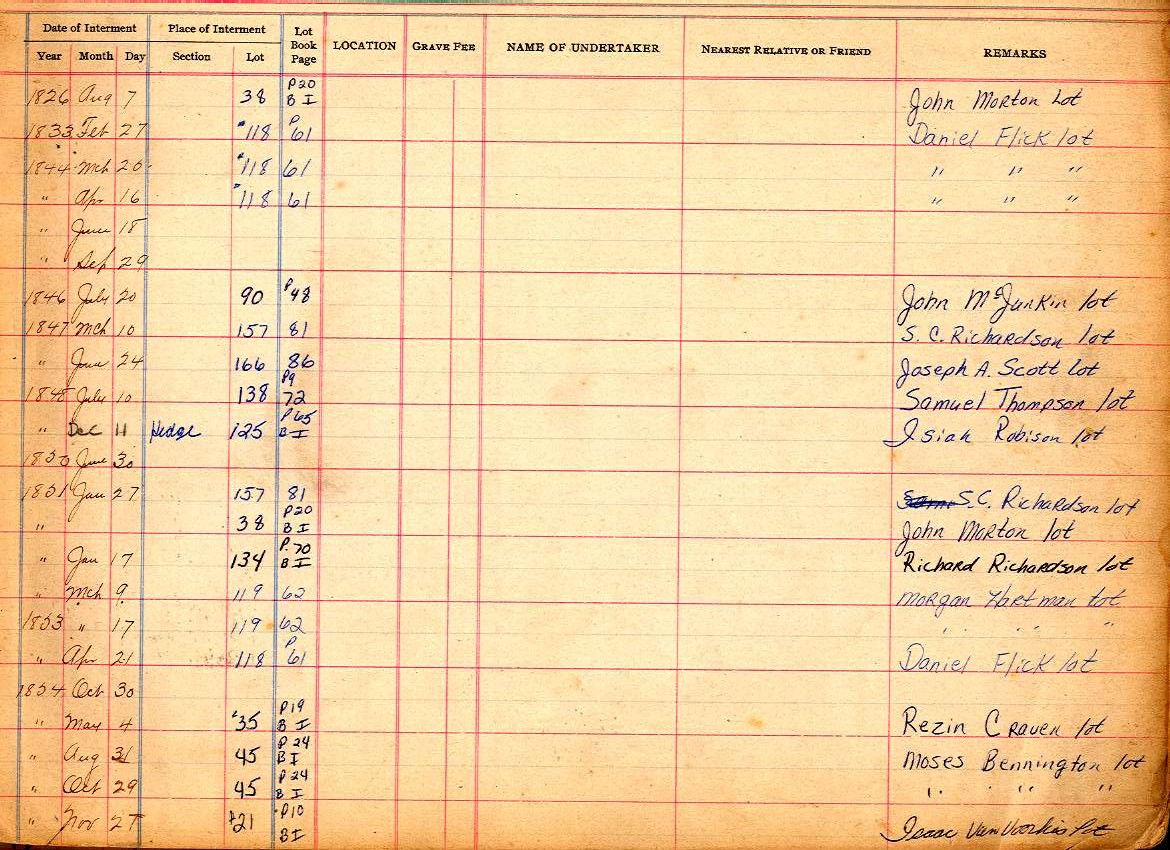 Date of Interment Place of Interment Lot Book Page LOCATION GRAVE FEE NAME OF UNDERTAKER NEAREST RELATIVE OR FRIEND REMARKS
Year Month Day Section Lot
1826 Aug 7 38 P20 B I John Morton Lot
1833 Feb 27 "118 P 61 Daniel Flick lot
1844 Mch 20 "118 61 " " "
" Apr 16 "118 61 " " "
" June 18
" Sep 29
1846 July 20 90 P 48 John McJunkin lot
1847 Mch 10 157 81 S. C. Richardson lot
" June 24 166 86 Joseph A. Scott lot
1848 July 10 138 P9 72 Samuel Thompson lot
" Dec 11 Hedge 125 P 65 B I Isiah Robison lot
1850 June 30
1851 Jan 27 157 81 S.C. Richardson lot
" 38 P20 B I John Morton lot
" Jan 17 134 P. 70 B I Richard Richardson lot
" Mch 9 119 62 Morgan Hartman lot
1853 " 17 119 62 " " "
" Apr 21 118 P 61 Daniel Flick lot
1854 Oct 30
" May 4 35 P19 B I Rezin Craven lot
" Aug 31 45 P 24 B I Moses Bennington lot
" Oct 29 45 P 24 B I " " "
" Nov 27 21 P10 B I Isaac VanVoorhis lot